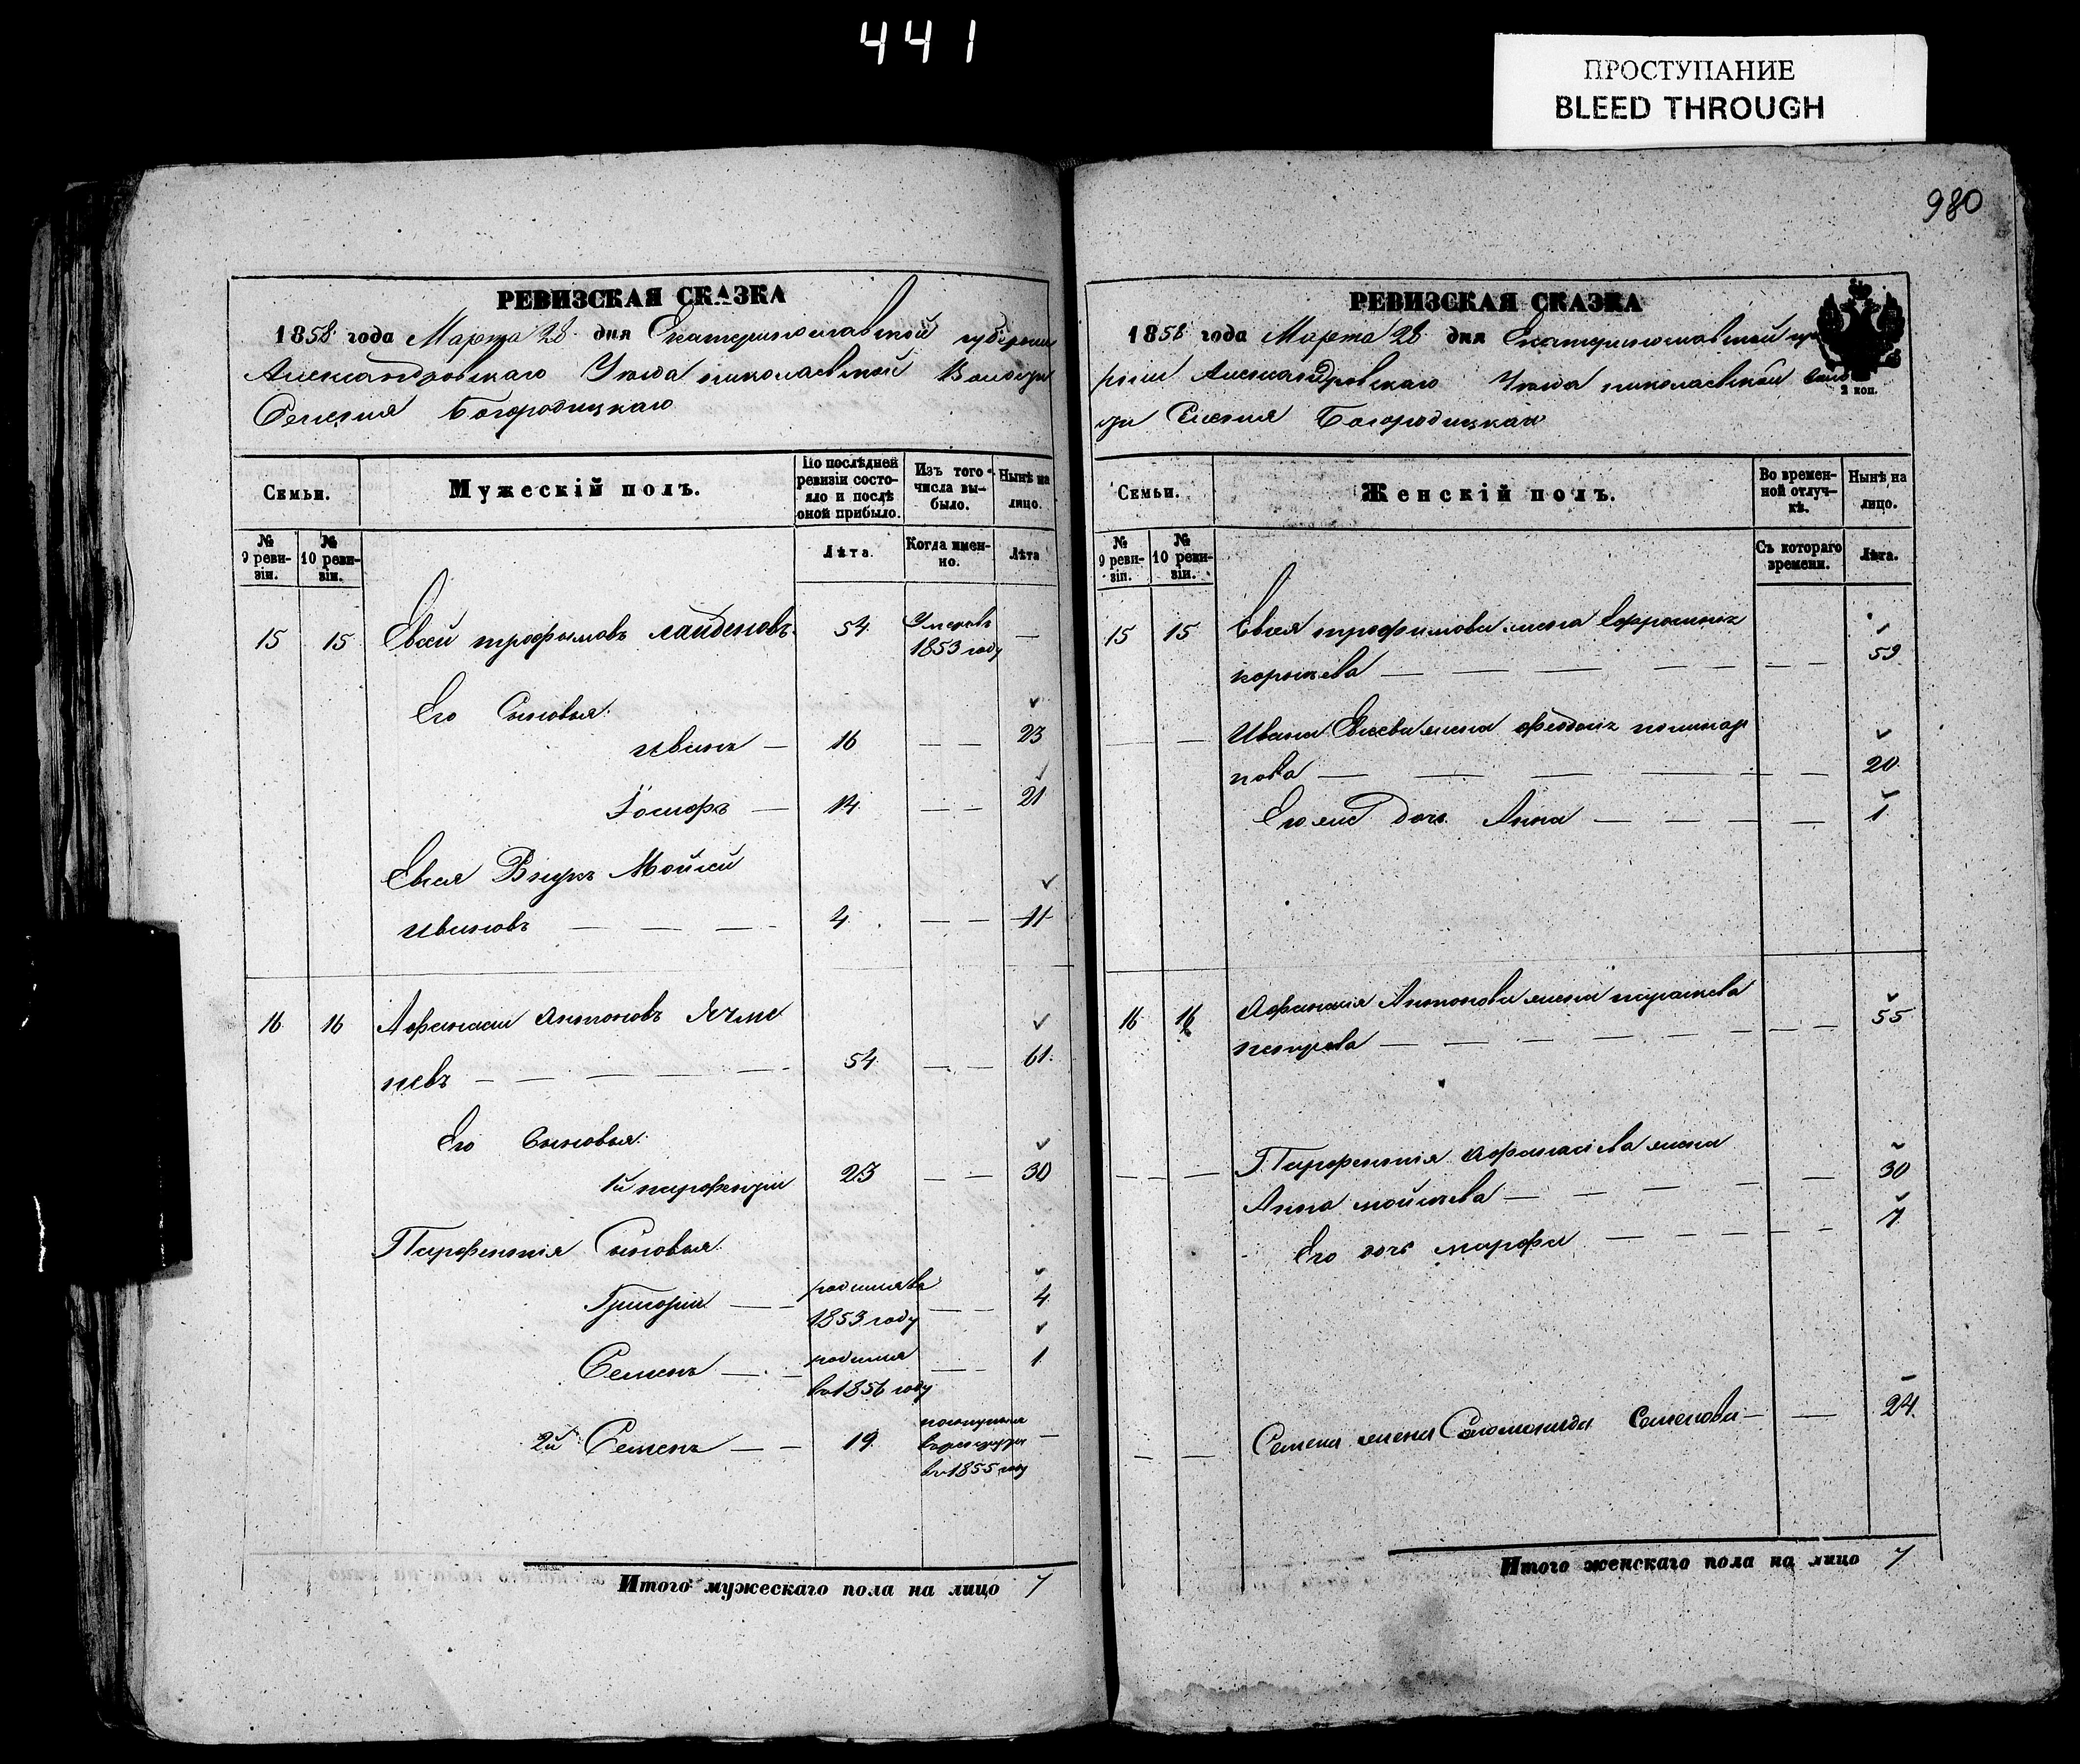 441
ПРОСТУПАНИЕ
BLEED THROUGH
980
РЕВИЗСКАЯ СКАЗКА
1858 года Марта 28 дня Екатеринославской губернии
Александровскаго Уезда николаевской Волости
Селения Богородицкаго
Семьи.
Мужескій полъ.
По послѣдней ревизіи состояло и послѣ оной прибыло.
Изъ того числа выбыло.
Нынѣ на лицо.
№ 9 ревизіи.
№ 10 ревизіи.
Лѣта.
Когда именно.
Лѣта
15 15 Евсей трофимовъ 54 Умеръ въ 1853 году —
Его Сыновья:
иванъ — 16 — — 23
Іосифъ — 14 — — 21
Евсея Внукъ Мойсей
ивановъ — — — 4 — — 11
16 16 Афанасий антоновъ Ячме
невъ — — — — 54 — — 61.
Его Сыновья:
1й парфентий 23 — — 30
Парфентия Сыновья:
Григорий — — родился въ 1853 году — — 4
Семенъ — — родился въ 1856 году — — 1
2й Семенъ — — 19 поступил в рекруты в 1855 году —
Итого мужескаго пола на лицо 7
РЕВИЗСКАЯ СКАЗКА
1858 года Марта 28 дня Екатеринославской губе
рнии Александровскаго Уезда николаевской Воло
сти Селения Богородицкаго
2 коп.
Семьи.
Женскій полъ.
Во временной отлучкѣ.
Нынѣ на лицо.
№ 9 ревизіи.
№ 10 ревизіи.
Съ котораго времени.
Лѣта.
15 15 Евсея трофимова жена Ефросинья
— — — — — — 59
Ивана Евсева жена феодосья
нова — — — — — — 20
Его же дочь Анна — — — — 1
16 16 Афанасия Антонова жена параскева
петрова — — — — — — — 55
— — Парфентия афанасиева жена
Анна мойсеева — — — — — 30
Его дочь марфа — — — — — 7
— — Семена жена Соломонида Семенова — — 24.
Итого женскаго пола на лицо 7